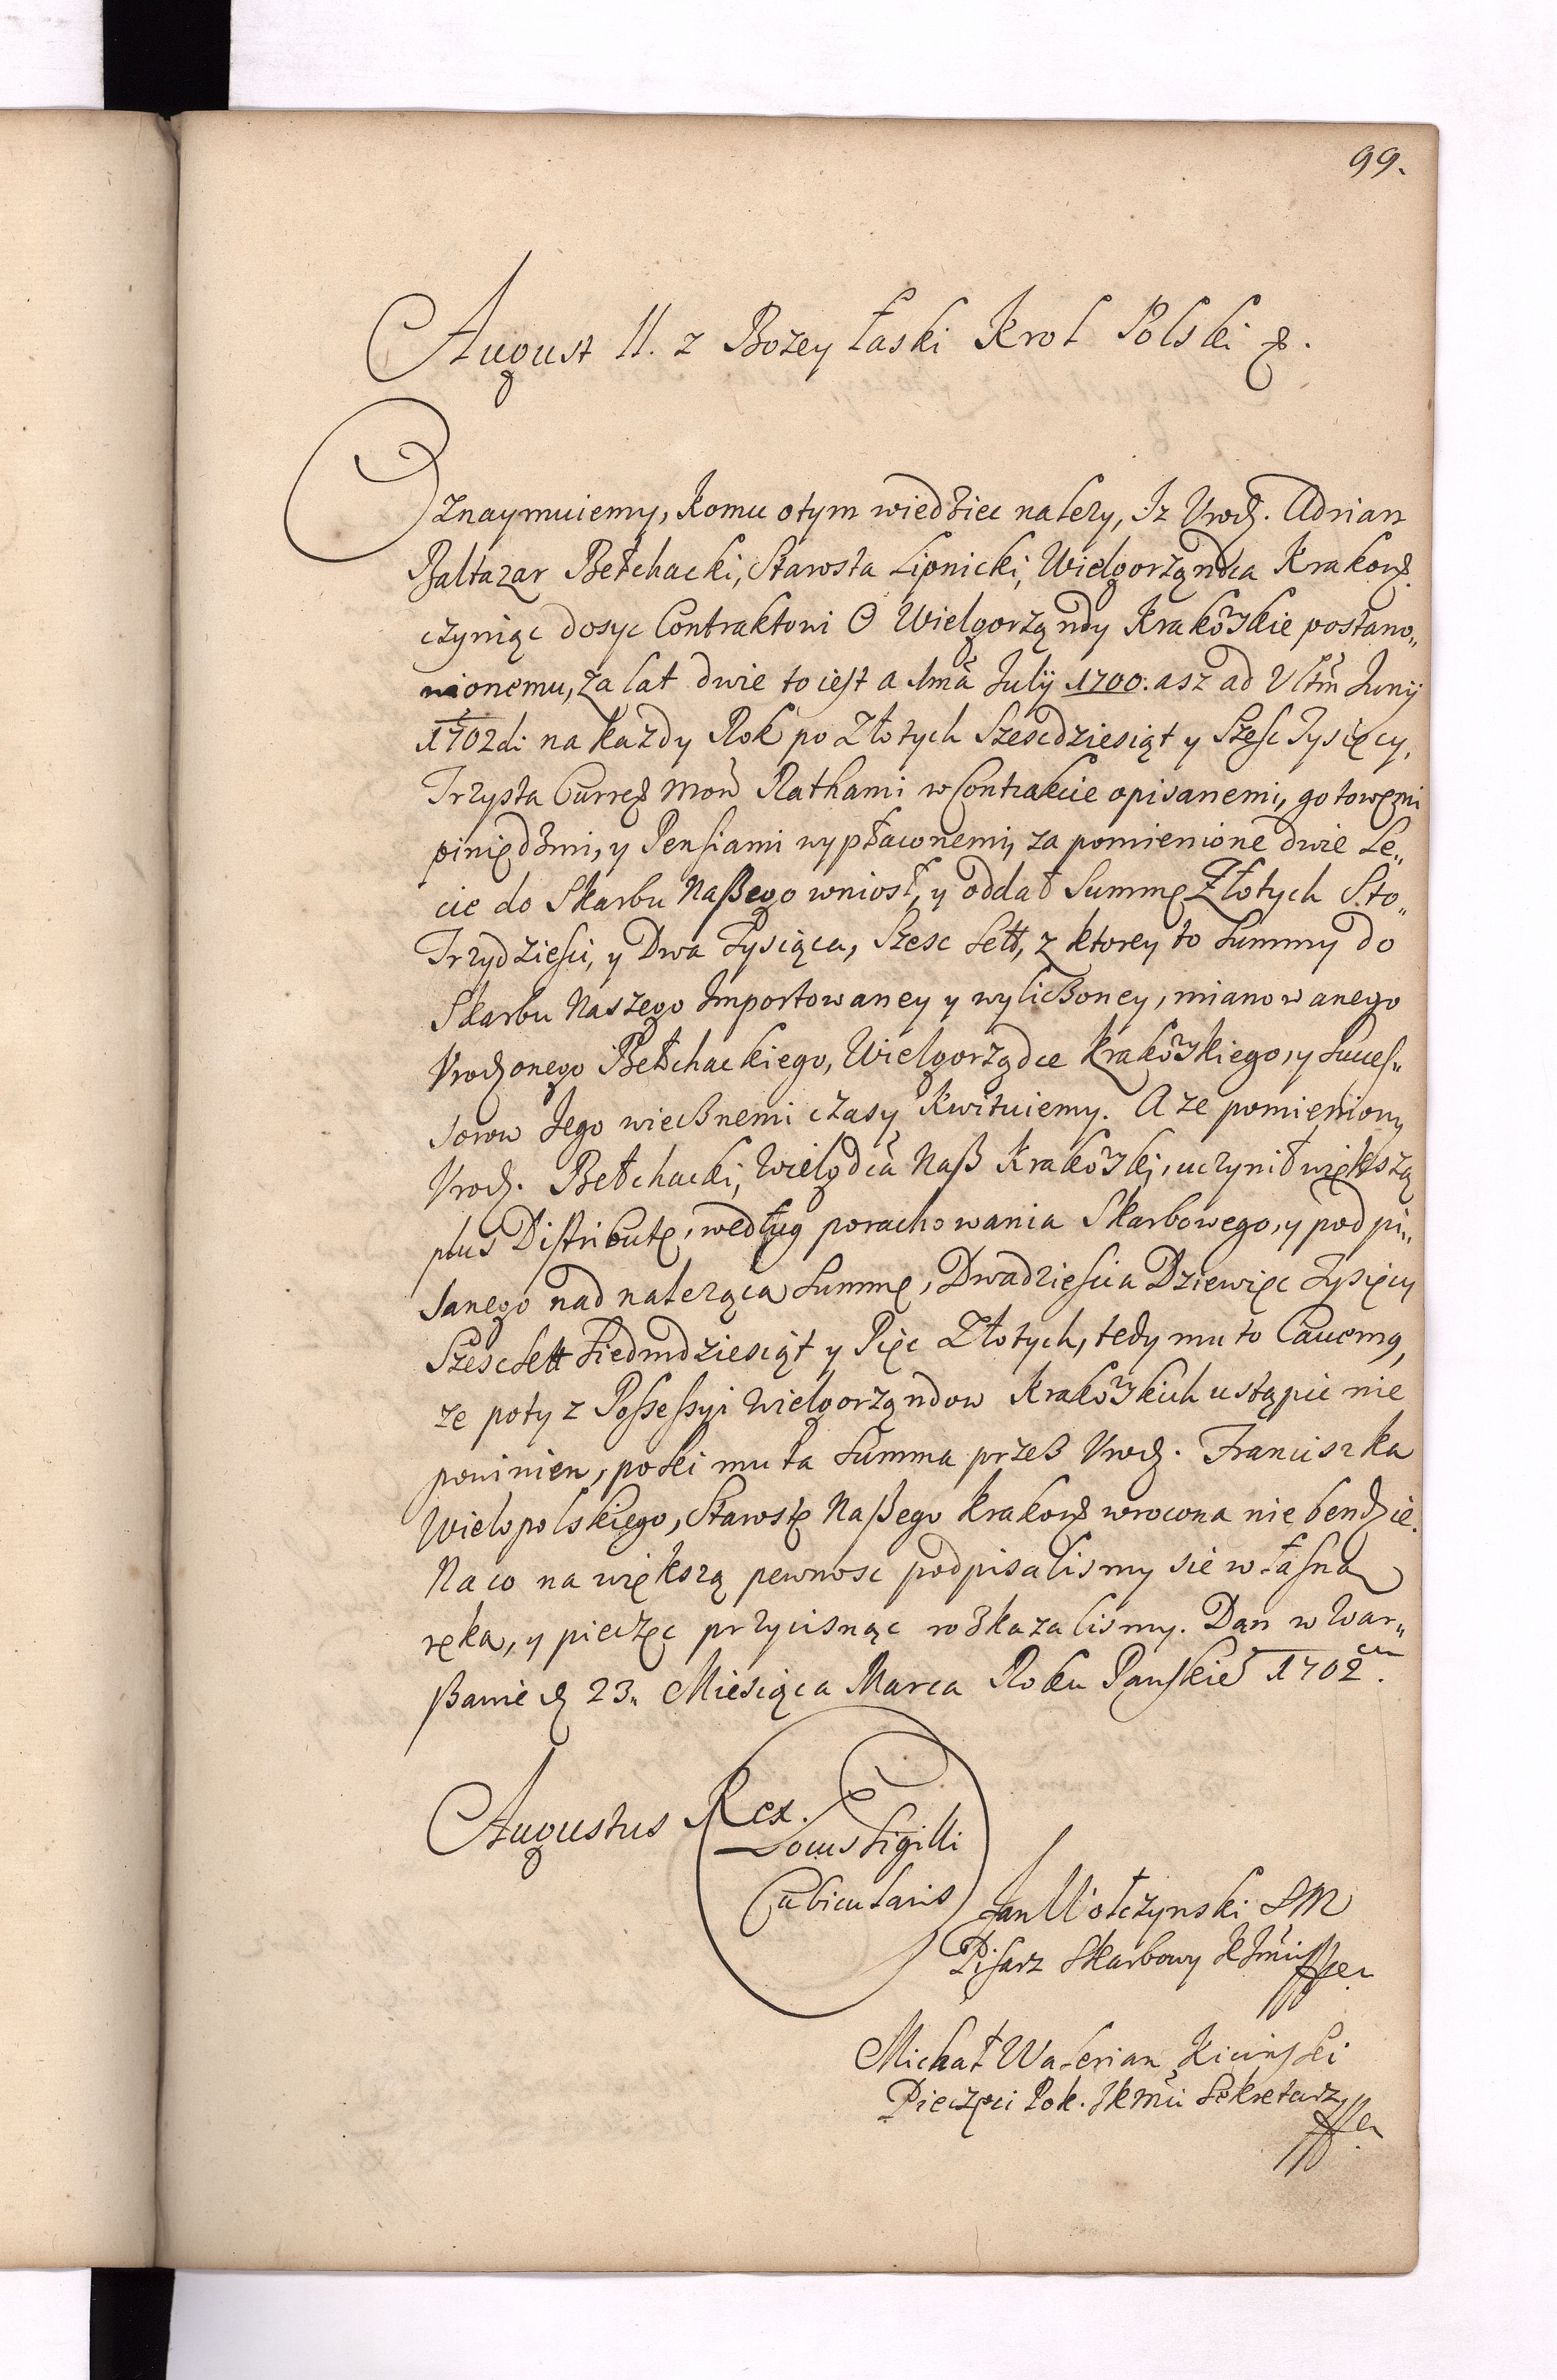 99.
August II. z Bozey łaski Krol Polski &.
Oznaymuiemy, komu otym wiedziec nalezy, Iz Vrodz. Adrian
Baltazar Bełchacki, Starosta Lipnicki, Wielgorządca Krakow.
czyniąc dosyc Contraktowi O Wielgorządy Krakowskie postano„
wionemu, za lat dwie to iest a 1ma Julij 1700. asz ad Vltm Junij
1702di na kazdy Rok po Złotych Szescdziesiąt y Szesc Tysięcy,
Trzysta Curren Mon Rathami w Contrakcie opisanemi, gotowemi
piniędzmi, y Pensiami wypłaconemi, za pomienione dwie Le„
cie do Skarbu Naszego wniosł, y oddał Summę Złotych Sto„
Trzydziesci, y Dwa Tysiąca, Szesc Sett, z ktorey to Summy do
Skarbu Naszego Importowaney y wyliczoney, mianowanego
Vrodzonego Bełchackiego, Wielgorządce Krakowskiego, y Succes„
sorow Jego wiecznemi czasy kwituiemy. A ze pomieniony
Vrodz. Bełchacki, Wielgdca Nasz Krakowski, uczynił większą
plus Distributę, według porachowania Skarbowego, y podpi„
sanego nad nalezącą Summę, Dwadziescia Dziewięc Tysięcy
Szescsett Siedmdziesiąt y Pięc Złotych, tedy mu to Cauemg,
ze poty z Possessyi Wielgorządow Krakowskich ustąpic nie
powinien, poki mu ta Summa przez Vrodz. Franciszka
Wielopolskiego, Starostę Naszego Krakow wrocona nie bendzie.
Na co na większą pewnosc podpisalismy sie własną
ręką, y pieczęc przycisnąc rozkazalismy. Dan w War„
szawie d. 23. Miesiąca Marca Roku Panskie° 1702.
Augustus Rex.
Locus Sigilli
Cubicularis
Jan Wołczynski SM
Pisarz Skarbowy
Michał Walerian Kicinski
Pieczęci Pok. JKMci Sekretarz